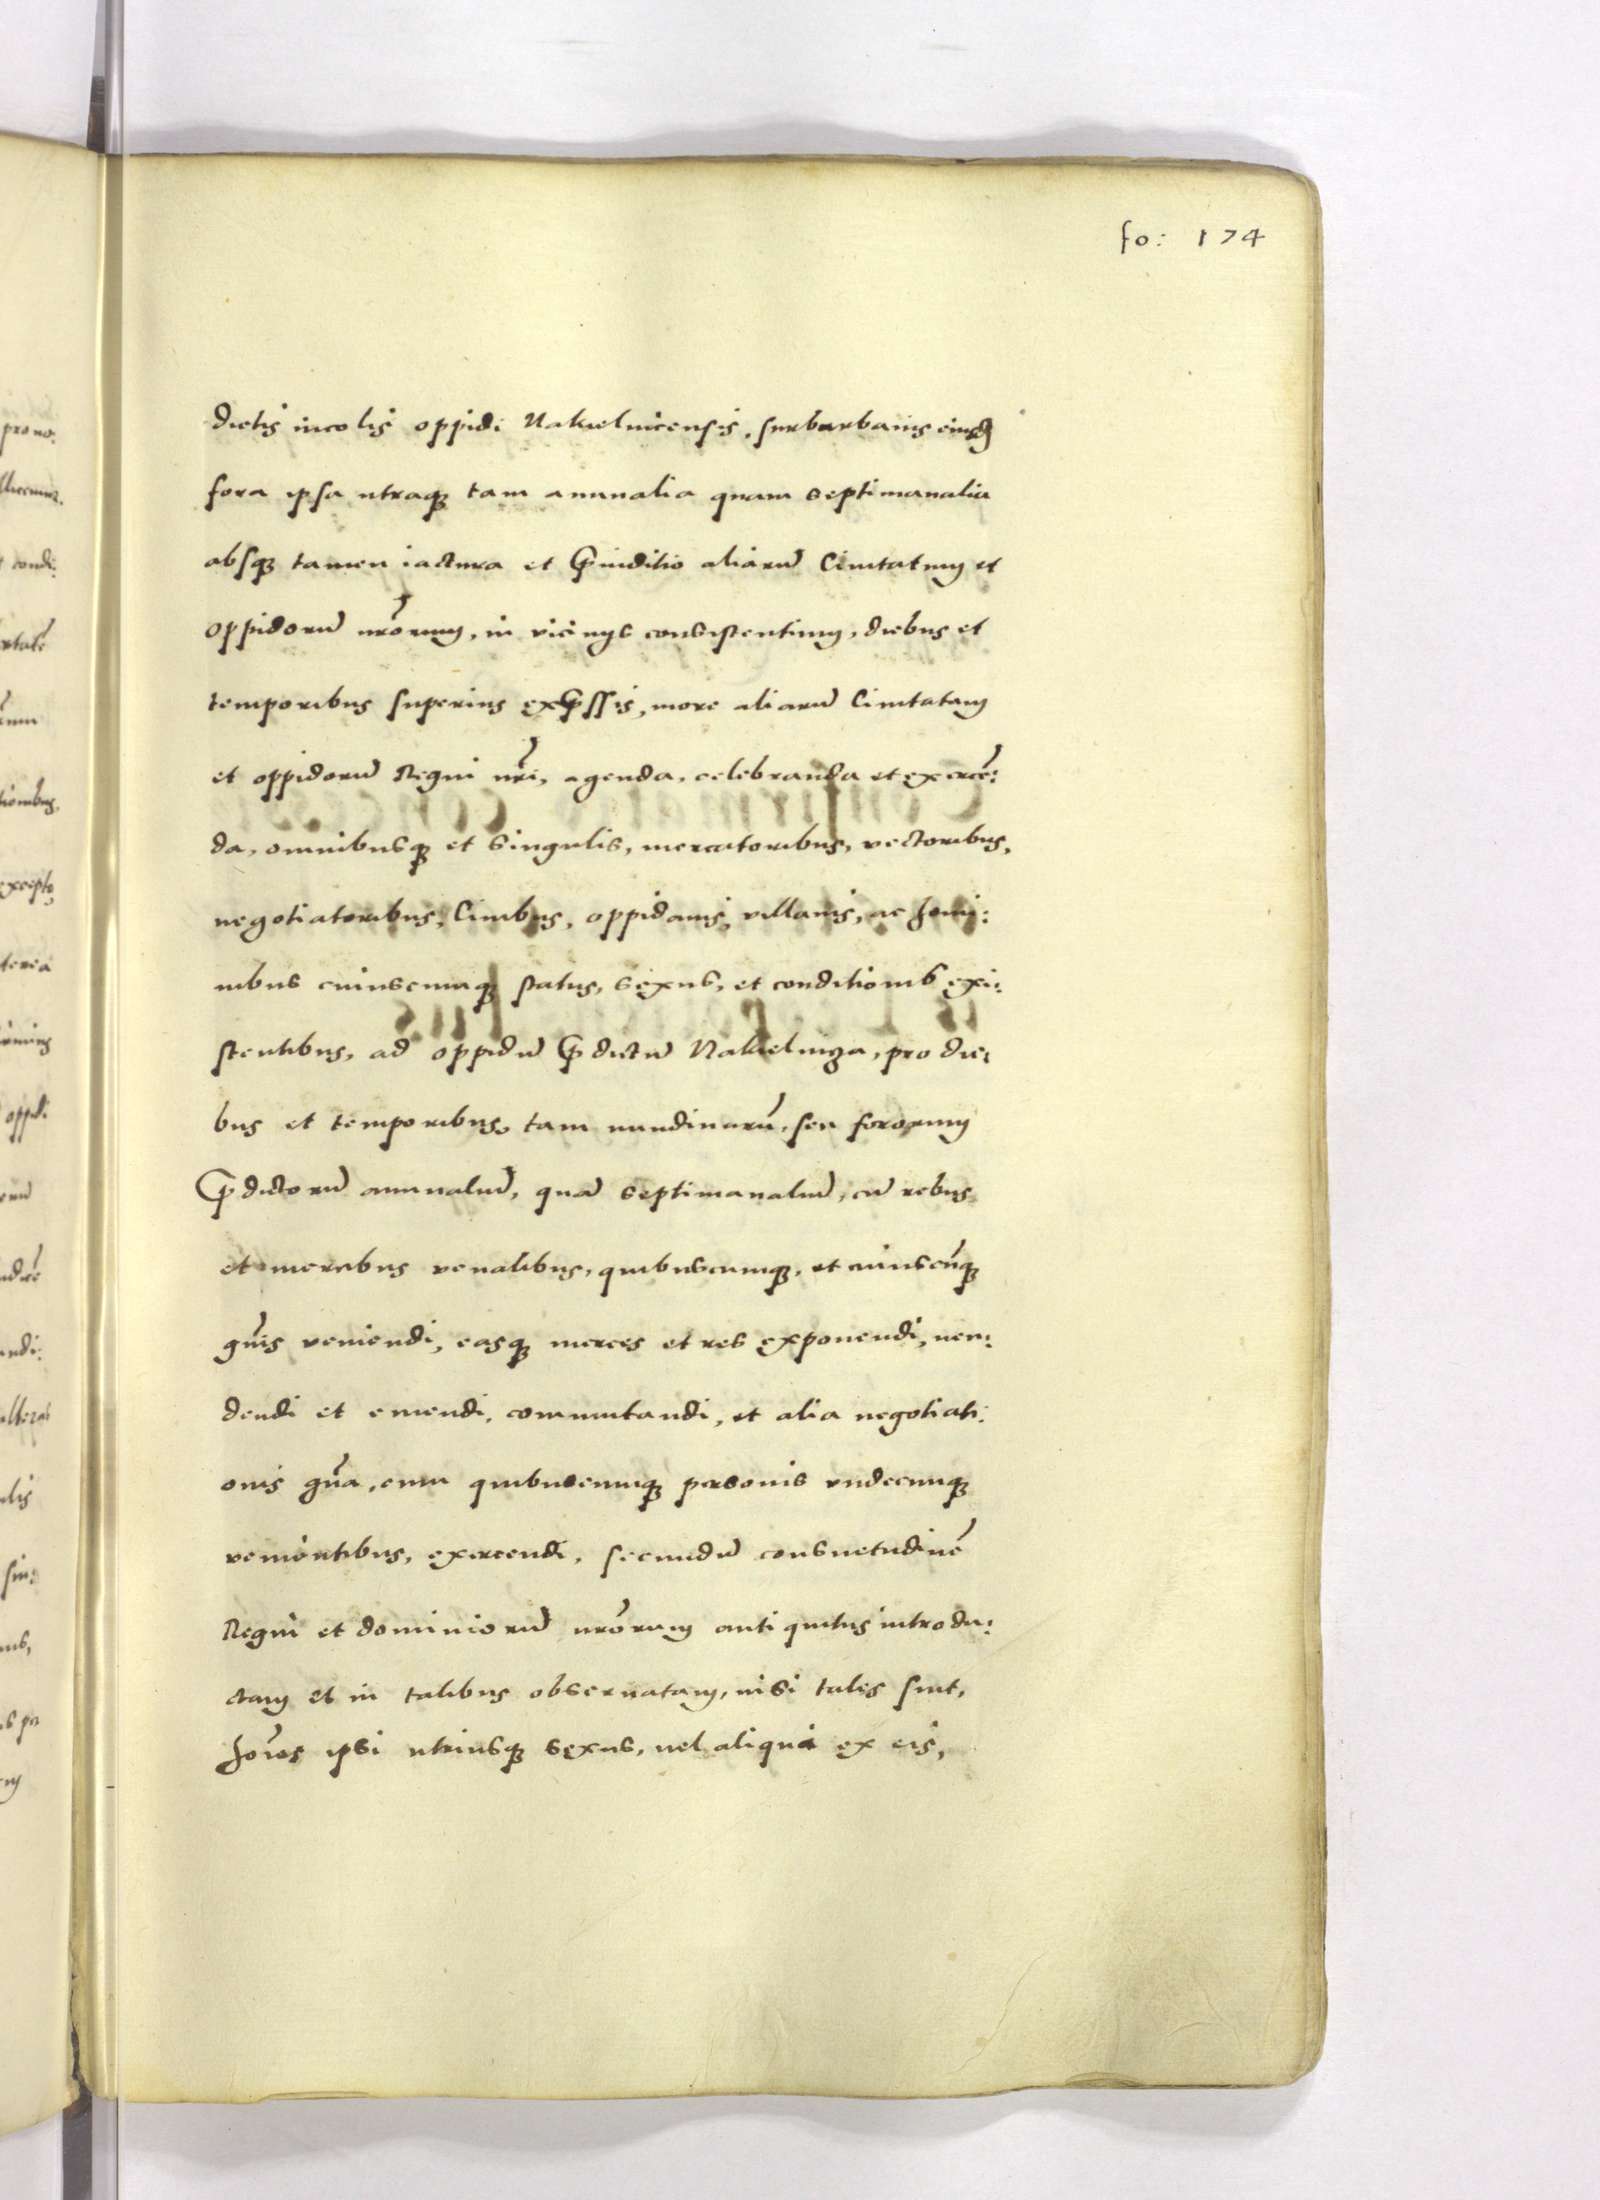 fo: 174
dictis incolis oppidi Nakielnicensis, surburbanis eiusdē
fora ipsa utraqꝫ tam annualia quam septimanalia
absqꝫ tamen iactura et p̄iuditio aliarū Ciuitatum et
oppidorū nr̄orum, in vicinys consistentium, diebus et
temporibus superius exp̄ssis, more aliarū Ciuitatum
et oppidorū Regni nr̄i, agenda, celebranda et exercē:
da, omnibusqꝫ et singulis, mercatoribus, vectoribus,
negotiatoribus, Ciuibus, oppidanis, villanis, ac homi:
nibus cuiuscumqꝫ status, sexus, et conditionis exi:
stentibus, ad oppidū p̄dictū Nakielnicza, pro die:
bus et temporibus, tam nundinarū, seu fororum
p̄dictorū annualiū, quā septimanaliū, cū rebus
et mercibus venalibus, quibuscumqꝫ, et cuiuscūqꝫ
gn̄is veniendi, easqꝫ merces et res exponendi, uen:
dendi et emendi, commutandi, et alia negotiati:
onis gn̄a, cum quibuscumqꝫ personis undecumqꝫ
venientibus, exercendi, secundū consuetudinē
Regni et dominiorū nr̄orum antiquitus introdu:
ctam et in talibus obseruatam, nisi tales sint,
hoīes ipsi utriusqꝫ sexus, uel aliqui ex eis,